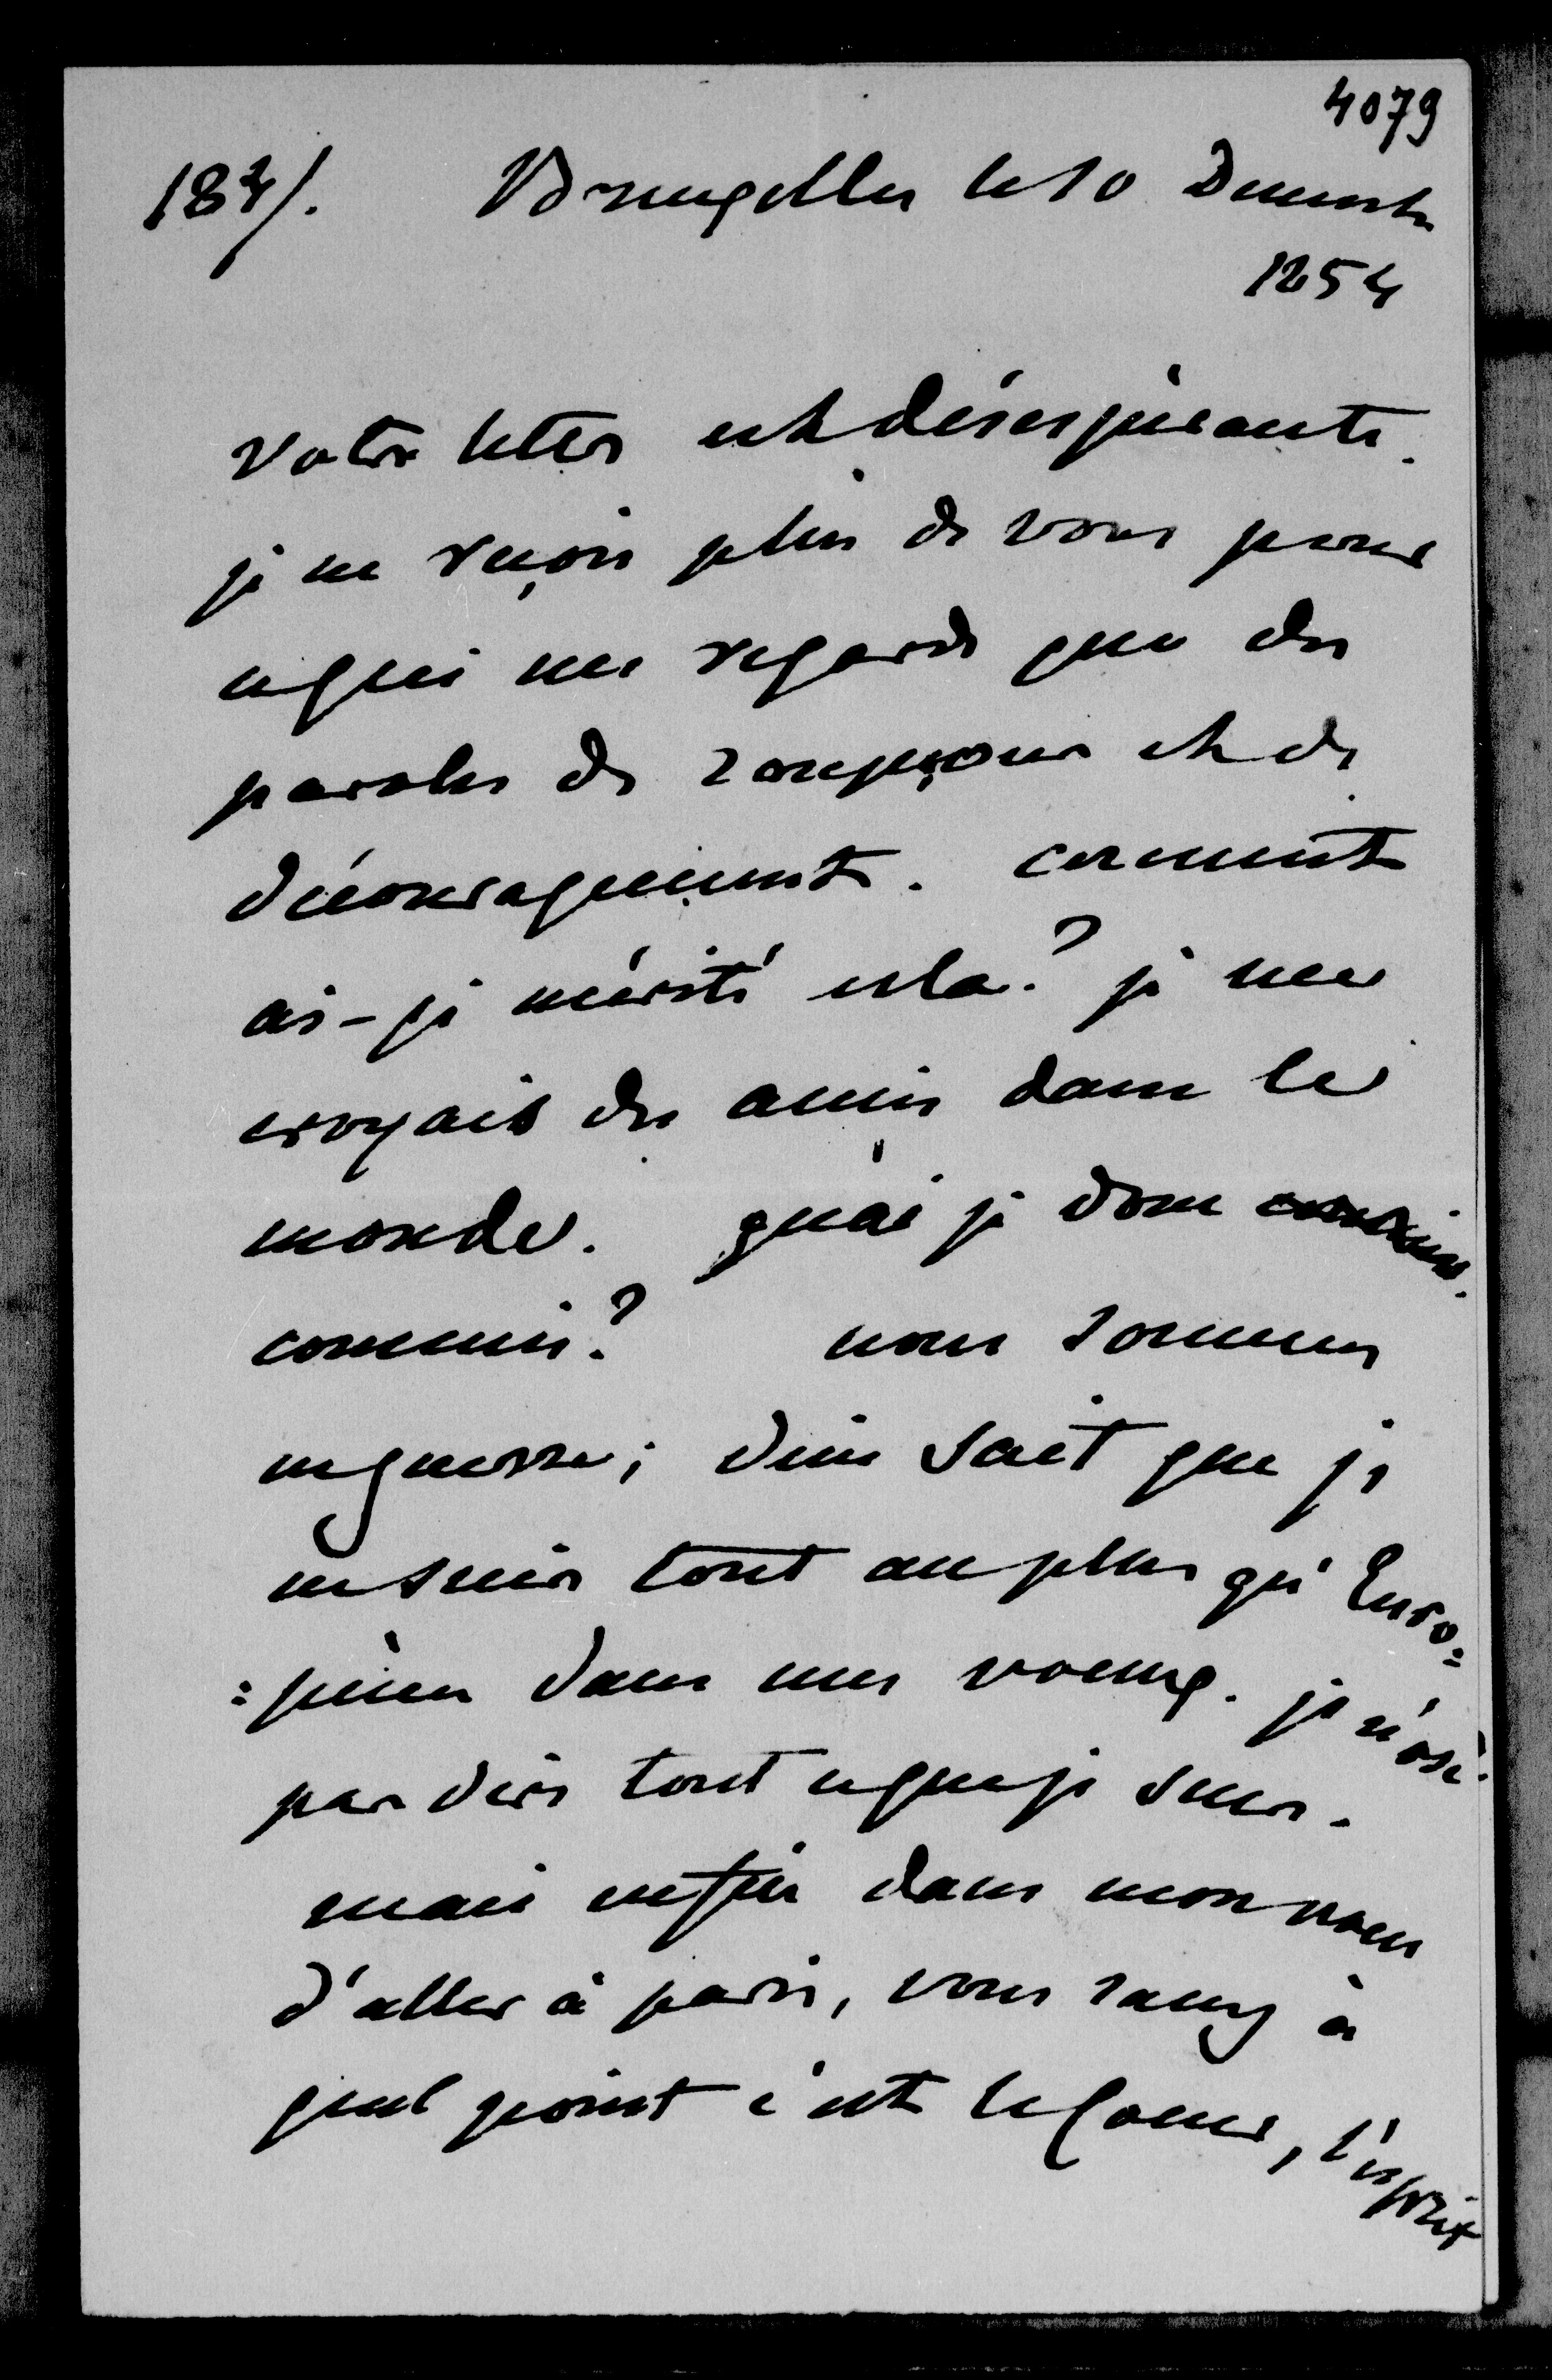 4079
184/. Bruxelles le 10 Decembre
1854
Votre lettre est désespérante.
je ne reçois plus de vous pour
ce qui me regarde que des
paroles de soupçons et de
découragement. comment
ai-je mérité cela? je me
croyais des amis dans le
monde. qu'ai je donc
commis? nous sommes
en guerre; dieu sait que je
ne suis tout au plus qu'Euro=
=péen dans mes voeux. je n'ose
pas dire tout ce que je suis.
mais enfin dans mon voeu
d'aller à paris, vous savez à
quel point c'est le coeur, l'esprit